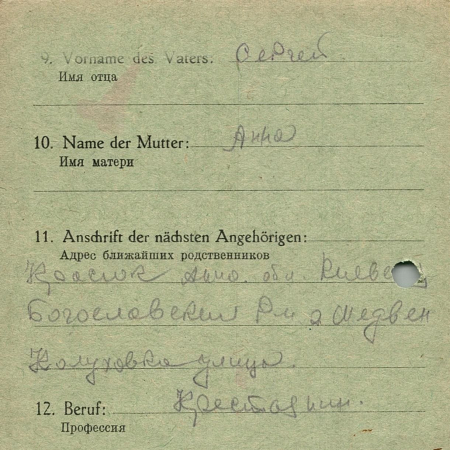 9. Vorname des Vaters: Сергей
Имя отца
10. Name der Mutter: Анна
Имя матери
11. Anschrift der nächsten Angehörigen:
Адрес ближайших родственников
Анна обл. Киевс
Богославский
улица.
12. Beruf: Крестьянин.
Профессия